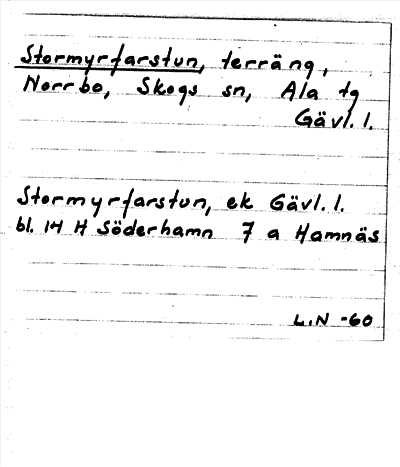 Stormyrfarstun, terräng,
Norrbo, Skogs sn, Ala tg
Gävl. l.
Stormyrfarstun, ek Gävl. l.
bl. 14 H Söderhamn 7 a Hamnäs
L.N -60